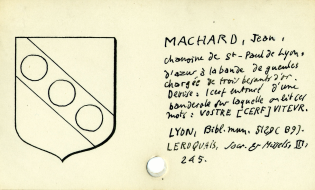 MACHARD, Jean,
chanoine de St-Paul de Lyon.
d'azur à la bande de gueules
chargée de trois besants d'or.
Devise: 1 cerf entouré d'une
banderole sur laquelle on lit ces
mots: VOSTRE [CERF] VITEUR.
LYON, Bibl. mun. 5128 (B9).
LEROQUAIS, Sacr. et Missels III,
245.